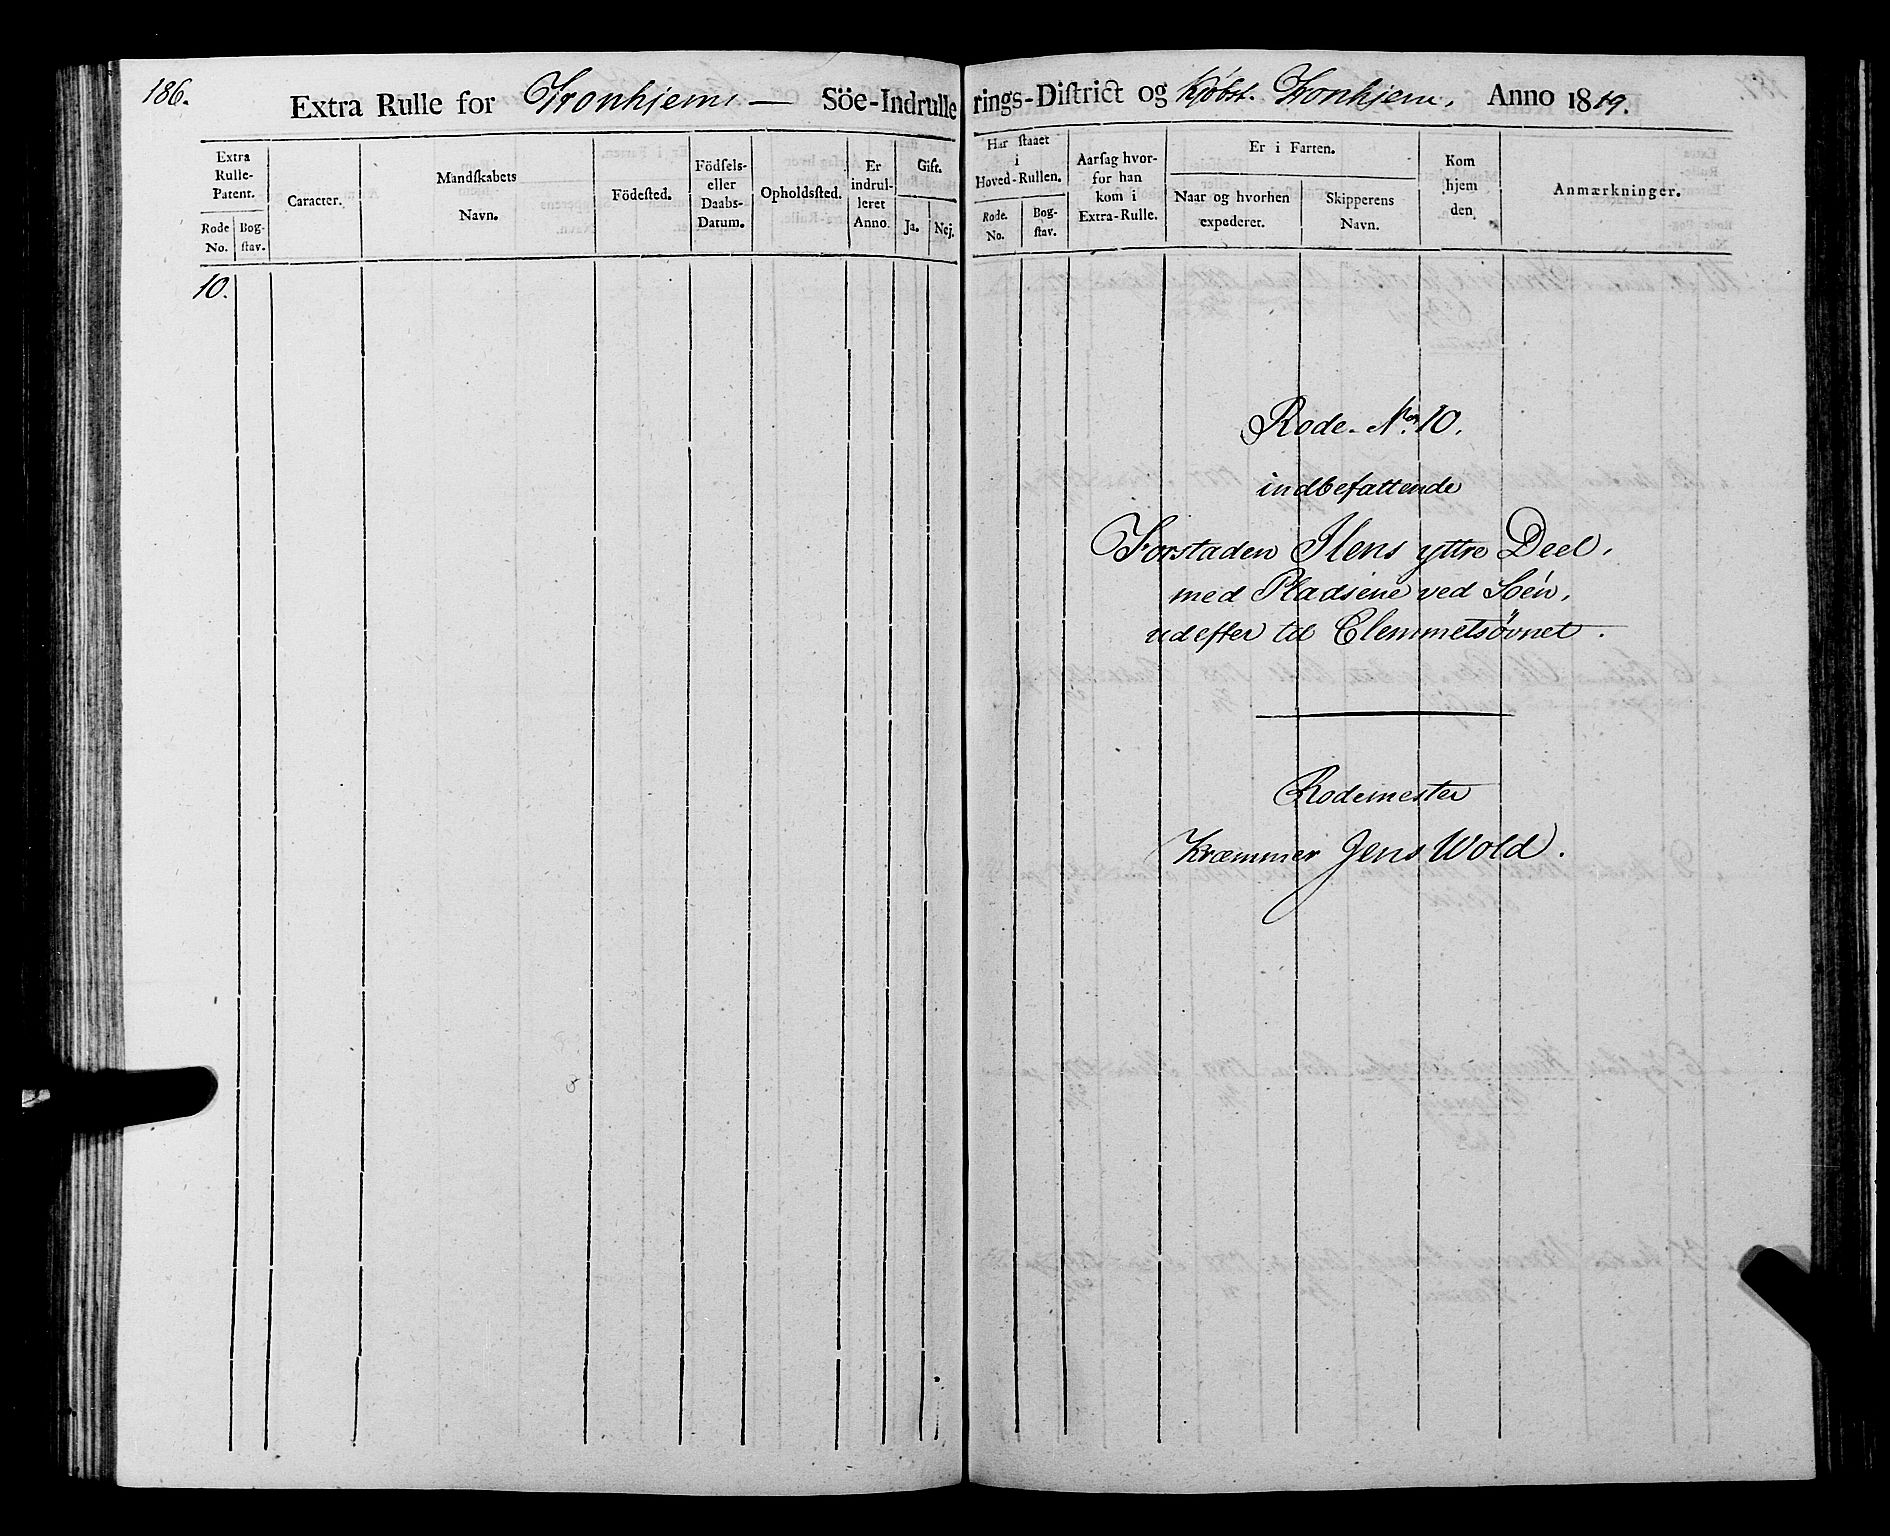 186.
Extra Rulle for Tronhjems — Söe-Indrullerings-District og Kjöbst. Tronhjem, Anno 1819.
Extra Rulle-Patent.
Rode No.
Bog-stav.
Caracter.
Mandskabets Navn.
Födested.
Födsels- eller Daabs-Datum.
Opholdssted.
Er indrul-leret Anno.
Gift.
Ja.
Nej.
Har staaet i Hoved-Rullen.
Rode. No.
Bog-stav.
Aarsag hvor-for han kom i Extra-Rulle.
Er i Farten.
Naar og hvorhen expederet.
Skipperens Navn.
Kom hjem den
Anmærkninger.
10.
Rode No. 10.
indbefattende
Forstaden Ilens yttre Deel,
med Pladsene ved Söen,
udefter til Clemmetsøvnet.
Rodemester
Kræmmer Jens Wold.